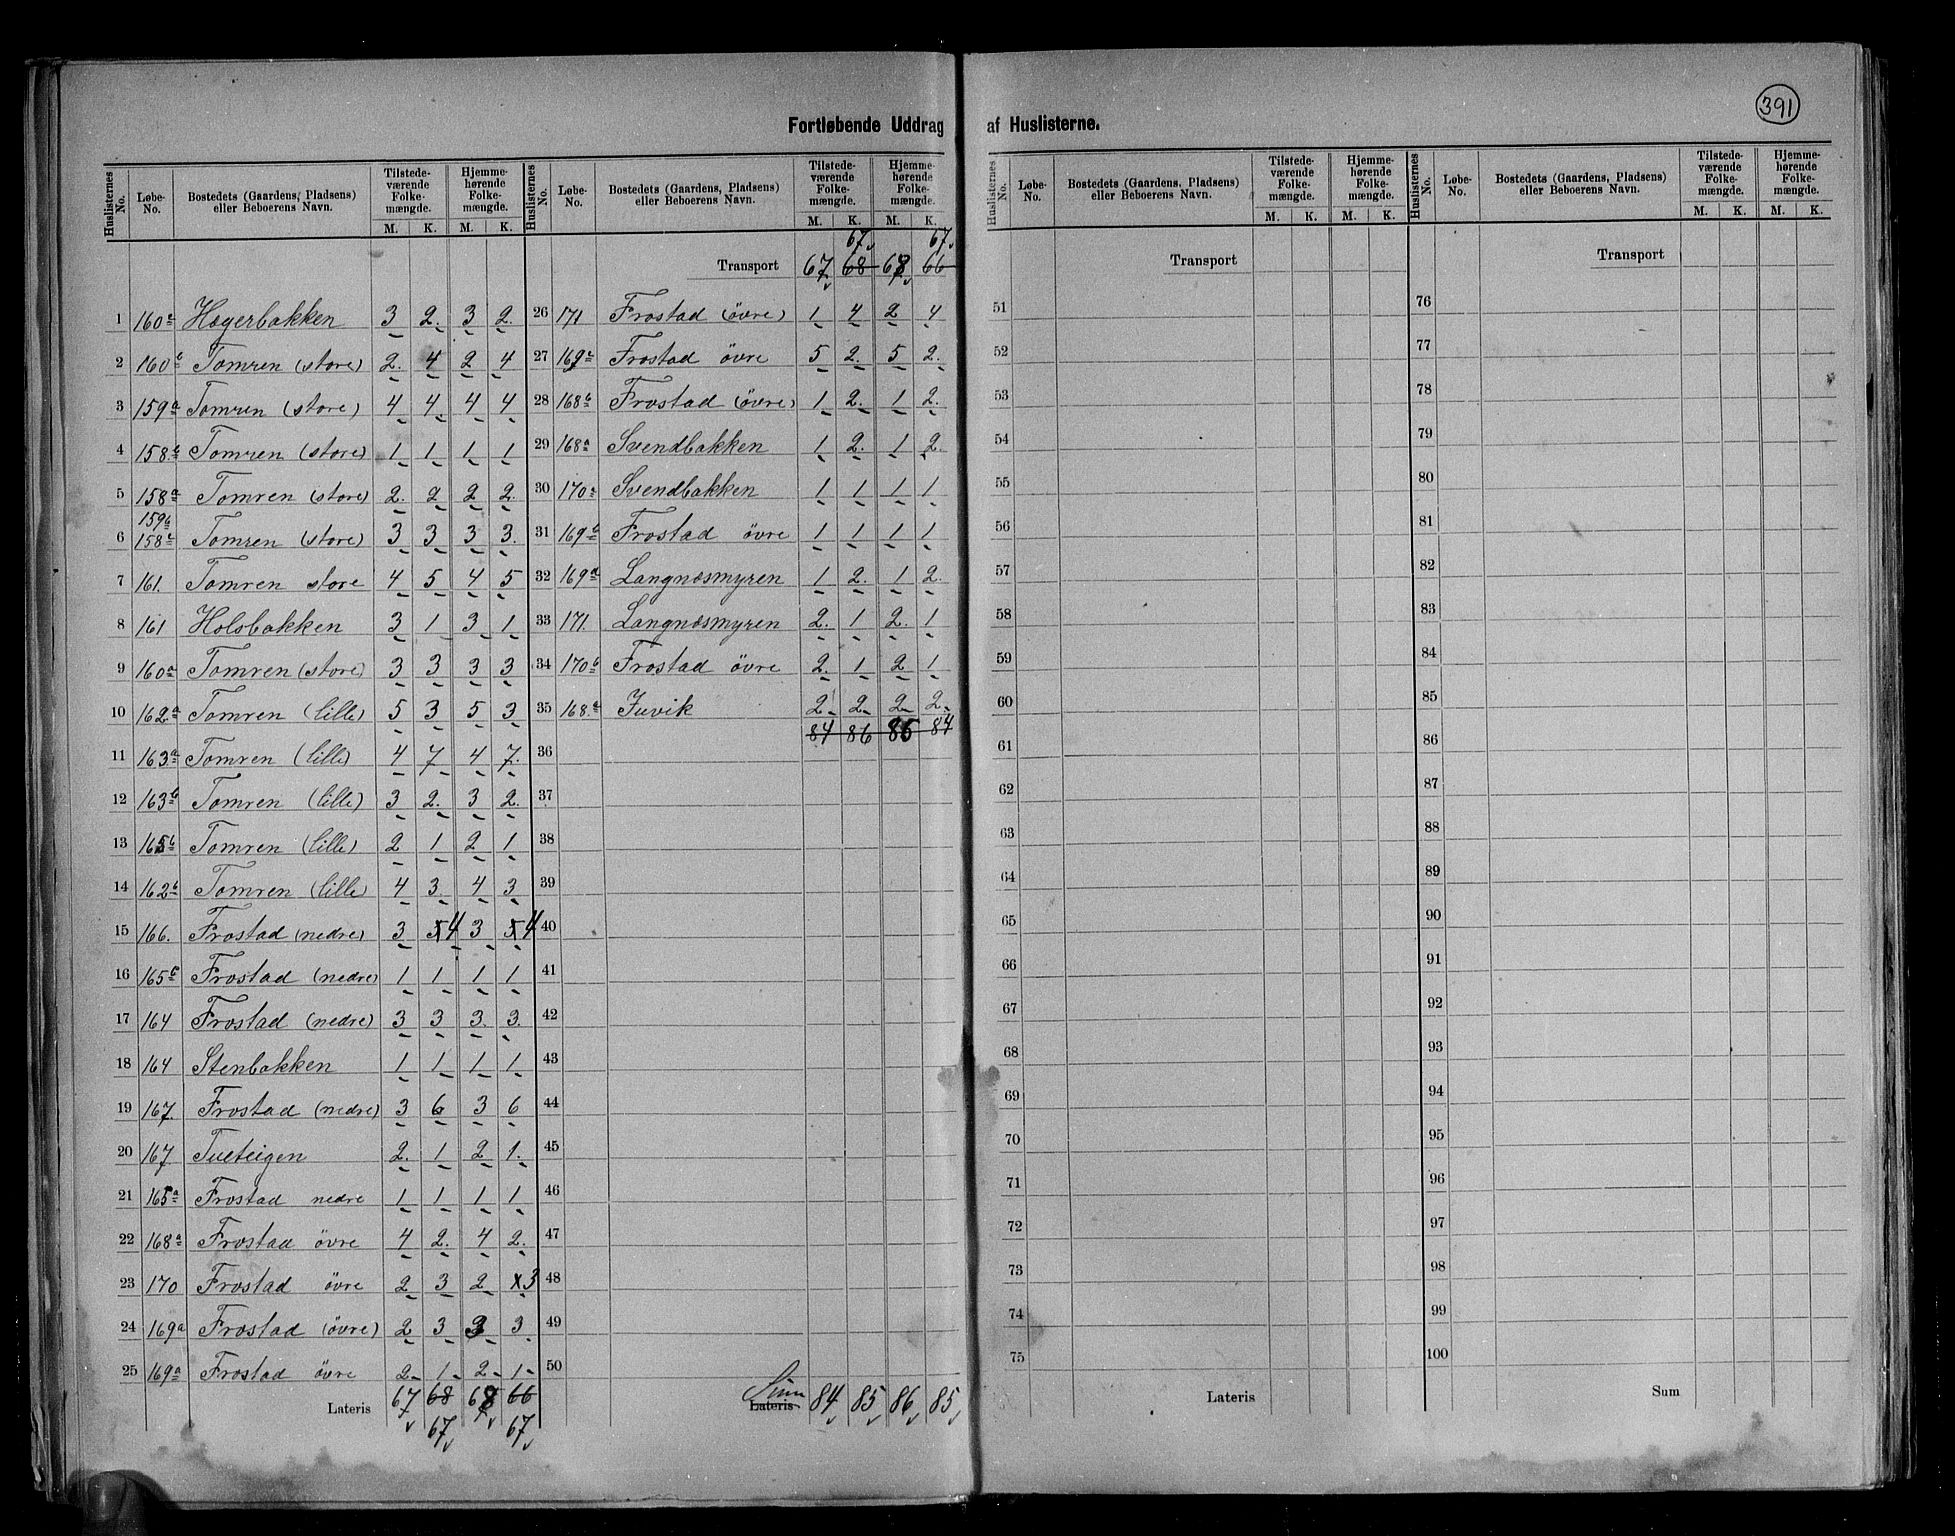 391
Fortløbende Uddrag af Huslisterne.
Huslisternes No. Løbe-No. Bostedets (Gaardens, Pladsens) eller Beboerens Navn. Tilstedeværende Folkemængde. M. K. Hjemmehørende Folkemængde. M. K.
1 160c Hagerbakken 3 2. 3 2.
2 160b Tomren (store) 2. 4 2 4
3 159a Tomren (store) 4 4 4 4
4 158b Tomren (store) 1 1 1 1
5 158a Tomren (store) 2. 2 2 2.
159b
6 158c Tomren (store) 3 3 3 3.
7 161. Tomren store 4 5 4 5
8 161 Holsbakken 3 1 3 1
9 160a Tomren (store) 3 3 3 3
10 162a Tomren (lille) 5 3 5 3
11 163a Tomren (lille) 4 7 4 7.
12 163b Tomren (lille) 3 2. 3 2.
13 165b Tomren (lille) 2 1 2 1
14 162b Tomren (lille) 4 3. 4 3
15 166. Frostad (nedre) 3 5 4 3 5 4
16 165c Frostad (nedre) 1 1 1 1
17 164 Frostad (nedre) 3 3 3. 3.
18 164 Stenbakken 1 1 1 1
19 167. Frostad (nedre) 3 6 3 6
20 167 Tueteigen 2. 1 2 1.
21 165a Frostad nedre 1 1 1 1
22 168a Frostad övre 4 2. 4 2.
23 170 Frostad övre 2 3 2 x3
24 169a Frostad (övre) 2 3 3 3
25 169a Frostad övre 2 1 2 1
Lateris 67 68 68 66
67 67
Huslisternes No. Løbe-No. Bostedets (Gaardens, Pladsens) eller Beboerens Navn. Tilstedeværende Folkemængde. M. K. Hjemmehørende Folkemængde. M. K.
67 67
Transport 67 68 68 66
26 171 Frostad (övre) 1 4 2 4
27 169c Frostad övre 5 2. 5 2.
28 168b Frostad (övre) 1 2. 1 2.
29 168a Svendbakken 1 2. 1 2.
30 170a Svendbakken 1 1 1 1
31 169b Frostad övre 1 1 1 1
32 169d Langnæsmyren 1 2. 1 2.
33 171. Langnæsmyren 2. 1 2. 1
34 170b Frostad övre 2. 1 2 1
35 168.c Juvik 2 2 2 2
84 86 86 84
36
37
38
39
40
41
42
43
44
45
46
47
48
49
50
Sum
Lateris 84 85 86 85
Huslisternes No. Løbe-No. Bostedets (Gaardens, Pladsens) eller Beboerens Navn. Tilstedeværende Folkemængde. M. K. Hjemmehørende Folkemængde. M. K.
Transport
51
52
53
54
55
56
57
58
59
60
61
62
63
64
65
66
67
68
69
70
71
72
73
74
75
Lateris
Huslisternes No. Løbe-No. Bostedets (Gaardens, Pladsens) eller Beboerens Navn. Tilstedeværende Folkemængde. M. K. Hjemmehørende Folkemængde. M. K.
Transport
76
77
78
79
80
81
82
83
84
85
86
87
88
89
90
91
92
93
94
95
96
97
98
99
100
Sum